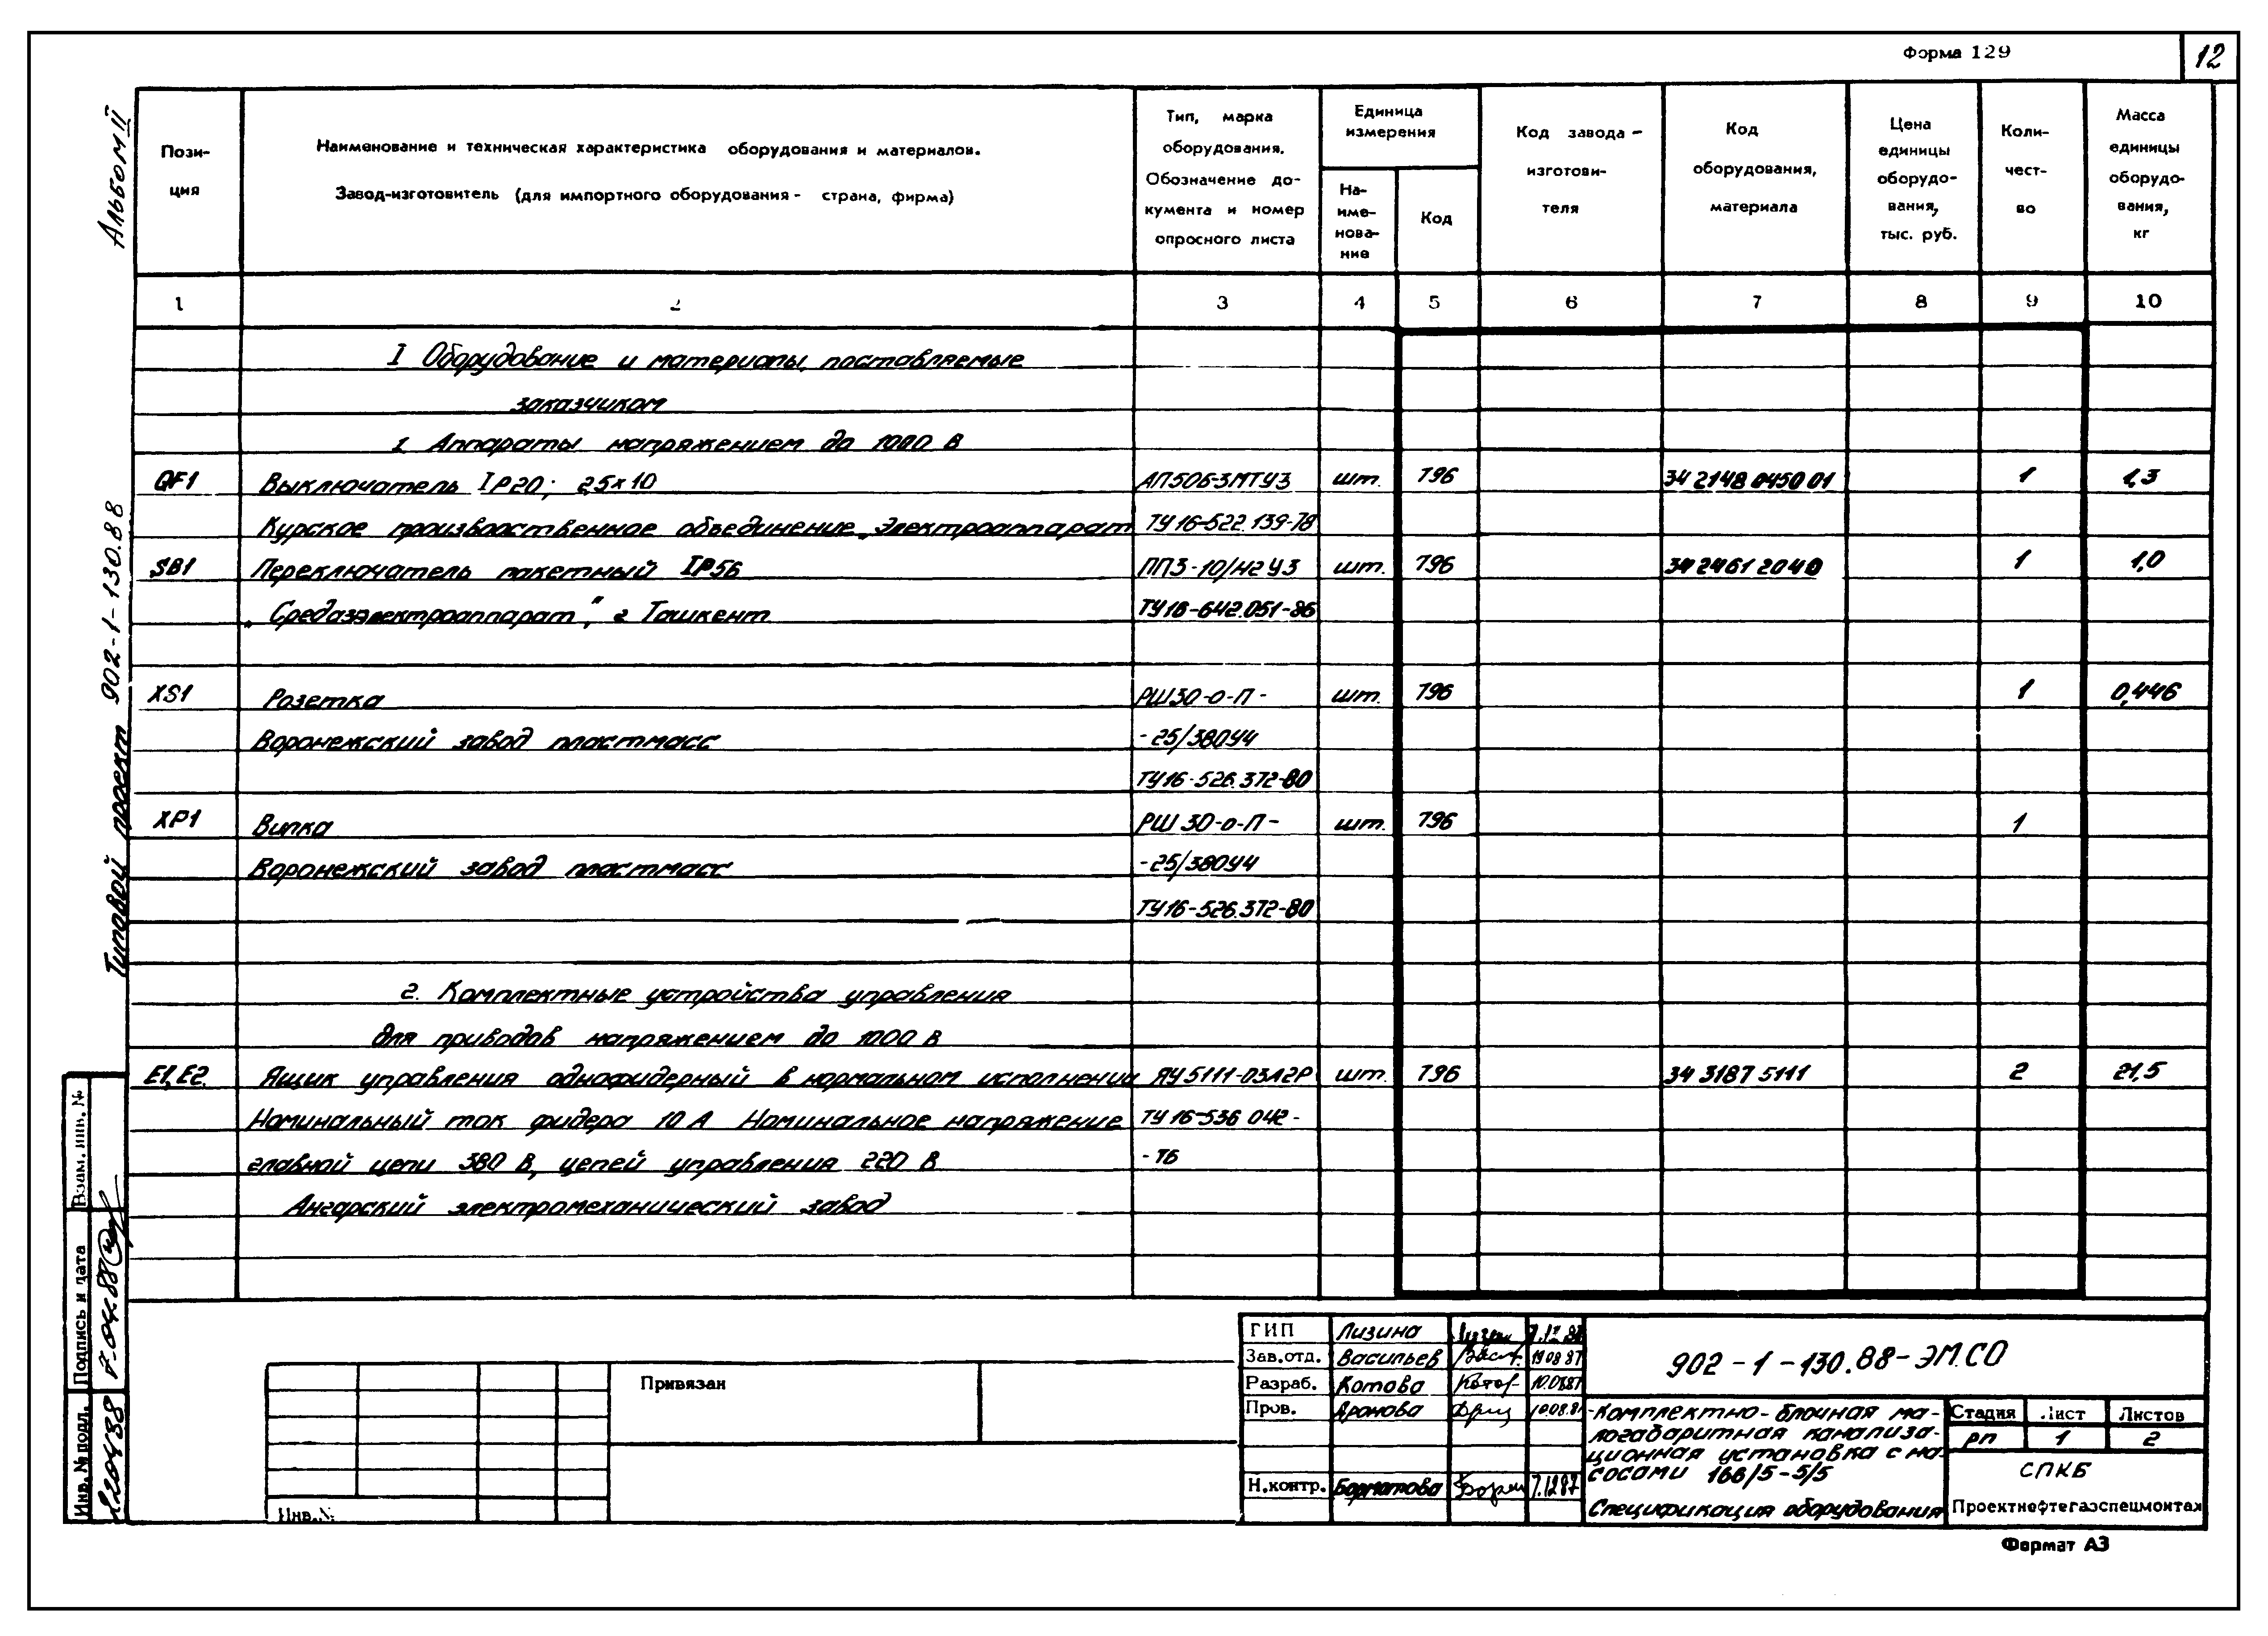 Форма 129
12
Альбом II
Типовой проект 902-1-130.88
Пози-
ция
Наименование и техническая характеристика оборудования и материалов.
Завод-изготовитель (для импортного оборудования - страна, фирма)
Тип, марка
оборудования.
Обозначение до-
кумента и номер
опросного листа
Единица
измерения
На-
име-
нова-
ние
Код
Код завода -
изготови-
теля
Код
оборудования,
материала
Цена
единицы
оборудо-
вания,
тыс. руб.
Коли-
чест-
во
Масса
единицы
оборудо-
вания,
кг
1 2 3 4 5 6 7 8 9 10
I Оборудование и материалы, поставляемые
заказчиком
1 Аппараты напряжением до 1000 В
QF1 Выключатель IP20; 2,5×10 АП50Б-3МТУ3 шт. 796 34 2148 0450 01 1 1,3
Курское производственное объединение „Электроаппарат ТУ16-522.139-78
SB1 Переключатель пакетный IP56 ПП3-10/Н2 У3 шт. 796 34 2461 2040 1 1,0
„Средазэлектроаппарат", г Ташкент ТУ16-642.051-86
XS1 Розетка РШ30-0-П- шт. 796 1 0,446
Воронежский завод пластмасс -25/380У4
ТУ16-526.372-80
XP1 Вилка РШ 30-0-П- шт. 796 1
Воронежский завод пластмасс -25/380У4
ТУ16-526.372-80
2. Комплектные устройства управления
для приводов напряжением до 1000 В
E1, E2. Ящик управления однофидерный в нормальном исполнении ЯУ5111-03А2Р шт. 796 34 3187 5111 2 21,5
Номинальный ток фидера 10 А Номинальное напряжение ТУ16-536 042-
главной цепи 380 В, цепей управления 220 В -76
Ангарский электромеханический завод
Взам. инв. №
Подпись и дата
7-04.88
Инв. № подл.
Привязан
Инв.№
ГИП Лизина 7.12.87
Зав.отд. Васильев 19.08.87
Разраб. Котова 10.08.87
Пров. Аронова 10.08.87
Н.контр. Борматова 7.12.87
902-1-130.88-ЭМ.СО
Комплектно-блочная ма-
логабаритная канализа-
ционная установка с на-
сосами 16б/5-5/5
Спецификация оборудования
Стадия Лист Листов
РП 1 2
СПКБ
Проектнефтегазспецмонтаж
Формат А3